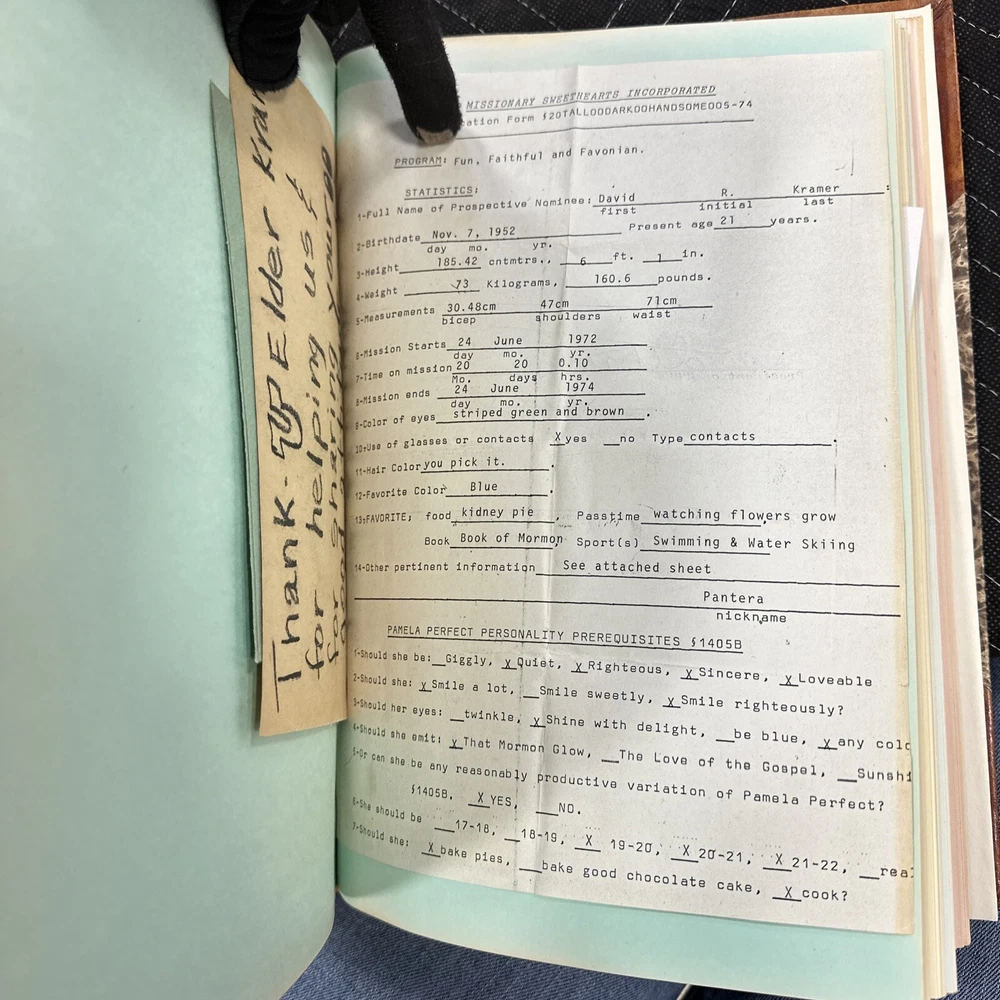 Thank-up Elder Kram
for helping us &
for sharing yours
MISSIONARY SWEETHEARTS INCORPORATED
cation Form §20TALLOODARKOOHANDSOMEOOS-74
PROGRAM: Fun, Faithful and Favonian.
STATISTICS:
1-Full Name of Prospective Nominee: David R. Kramer
first initial last
2-Birthdate Nov. 7, 1952 Present age 21 years.
day mo. yr.
3-Height 185.42 cntmtrs., 6 ft. 1 in.
4-Weight 73 Kilograms, 160.6 pounds.
5-Measurements 30.48cm 47cm 71cm
bicep shoulders waist
6-Mission Starts 24 June 1972
day mo. yr.
7-Time on mission 20 20 0.10
Mo. days hrs.
8-Mission ends 24 June 1974
day mo. yr.
9-Color of eyes striped green and brown.
10-Use of glasses or contacts X yes __no Type contacts.
11-Hair Color you pick it.
12-Favorite Color Blue.
13-FAVORITE; food kidney pie, Passtime watching flowers grow
Book Book of Mormon Sport(s) Swimming & Water Skiing
14-Other pertinent information See attached sheet
Pantera
nickname
PAMELA PERFECT PERSONALITY PREREQUISITES §1405B
1-Should she be:__Giggly, X Quiet, X Righteous, X Sincere, X Loveable
2-Should she: X Smile a lot, __Smile sweetly, X Smile righteously?
3-Should her eyes: __twinkle, X Shine with delight, __be blue, X any colo
4-Should she emit: X That Mormon Glow, __The Love of the Gospel, __Sunshi
5-Or can she be any reasonably productive variation of Pamela Perfect?
§1405B, X YES, __NO.
6-She should be __17-18, __18-19, X 19-20, X 20-21, X 21-22, __real
7-Should she: X bake pies, __bake good chocolate cake, X cook?